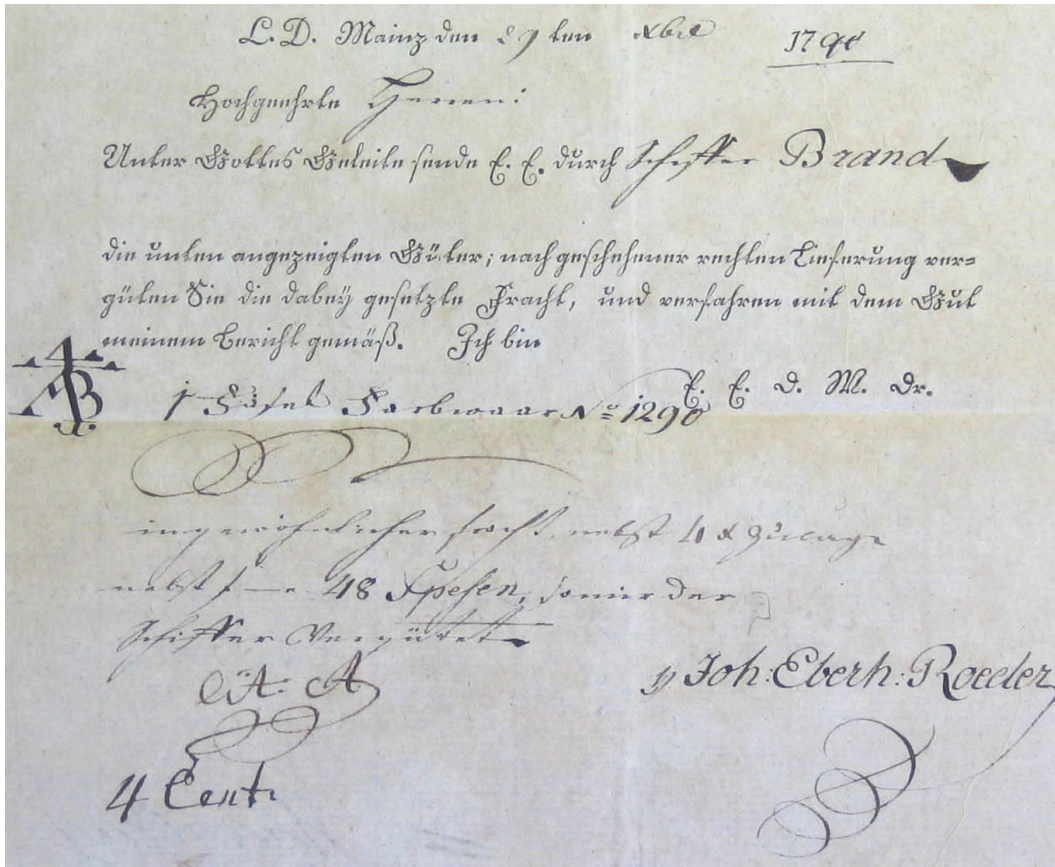 L. D. Mainz den 29 ten Xbre 1790
Hochgeehrte Herren:
Unter Gottes Geleite sende E. E. durch Schiffer Brand
die unten angezeigten Güter; nach geschehener rechten Lieferung ver=
güten Sie die dabey gesetzte Fracht, und verfahren mit dem Gut
meinem Bericht gemäß. Ich bin
E. E. D. W. Dr.
AB
1 Fäsel Farbwaar No 1290
in gewöhnlicher fracht, nebst 4 x Zulage
nebst f — 48 Spesen, so mir der
Schiffer Vergütet
Lit. A
p Joh: Eberh: Roeder
4 Cent: